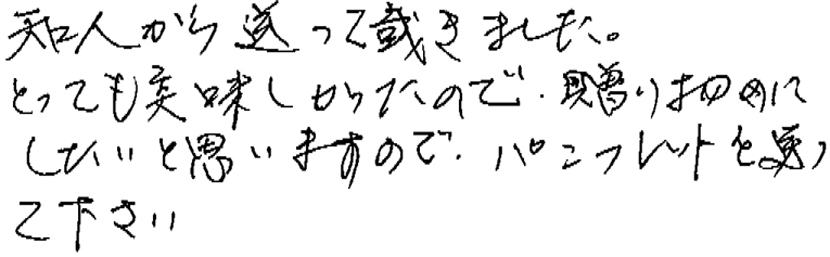 知人から送って戴きました。
とっても美味しかったので、贈り物に
したいと思いますので、パンフレットを送っ
て下さい